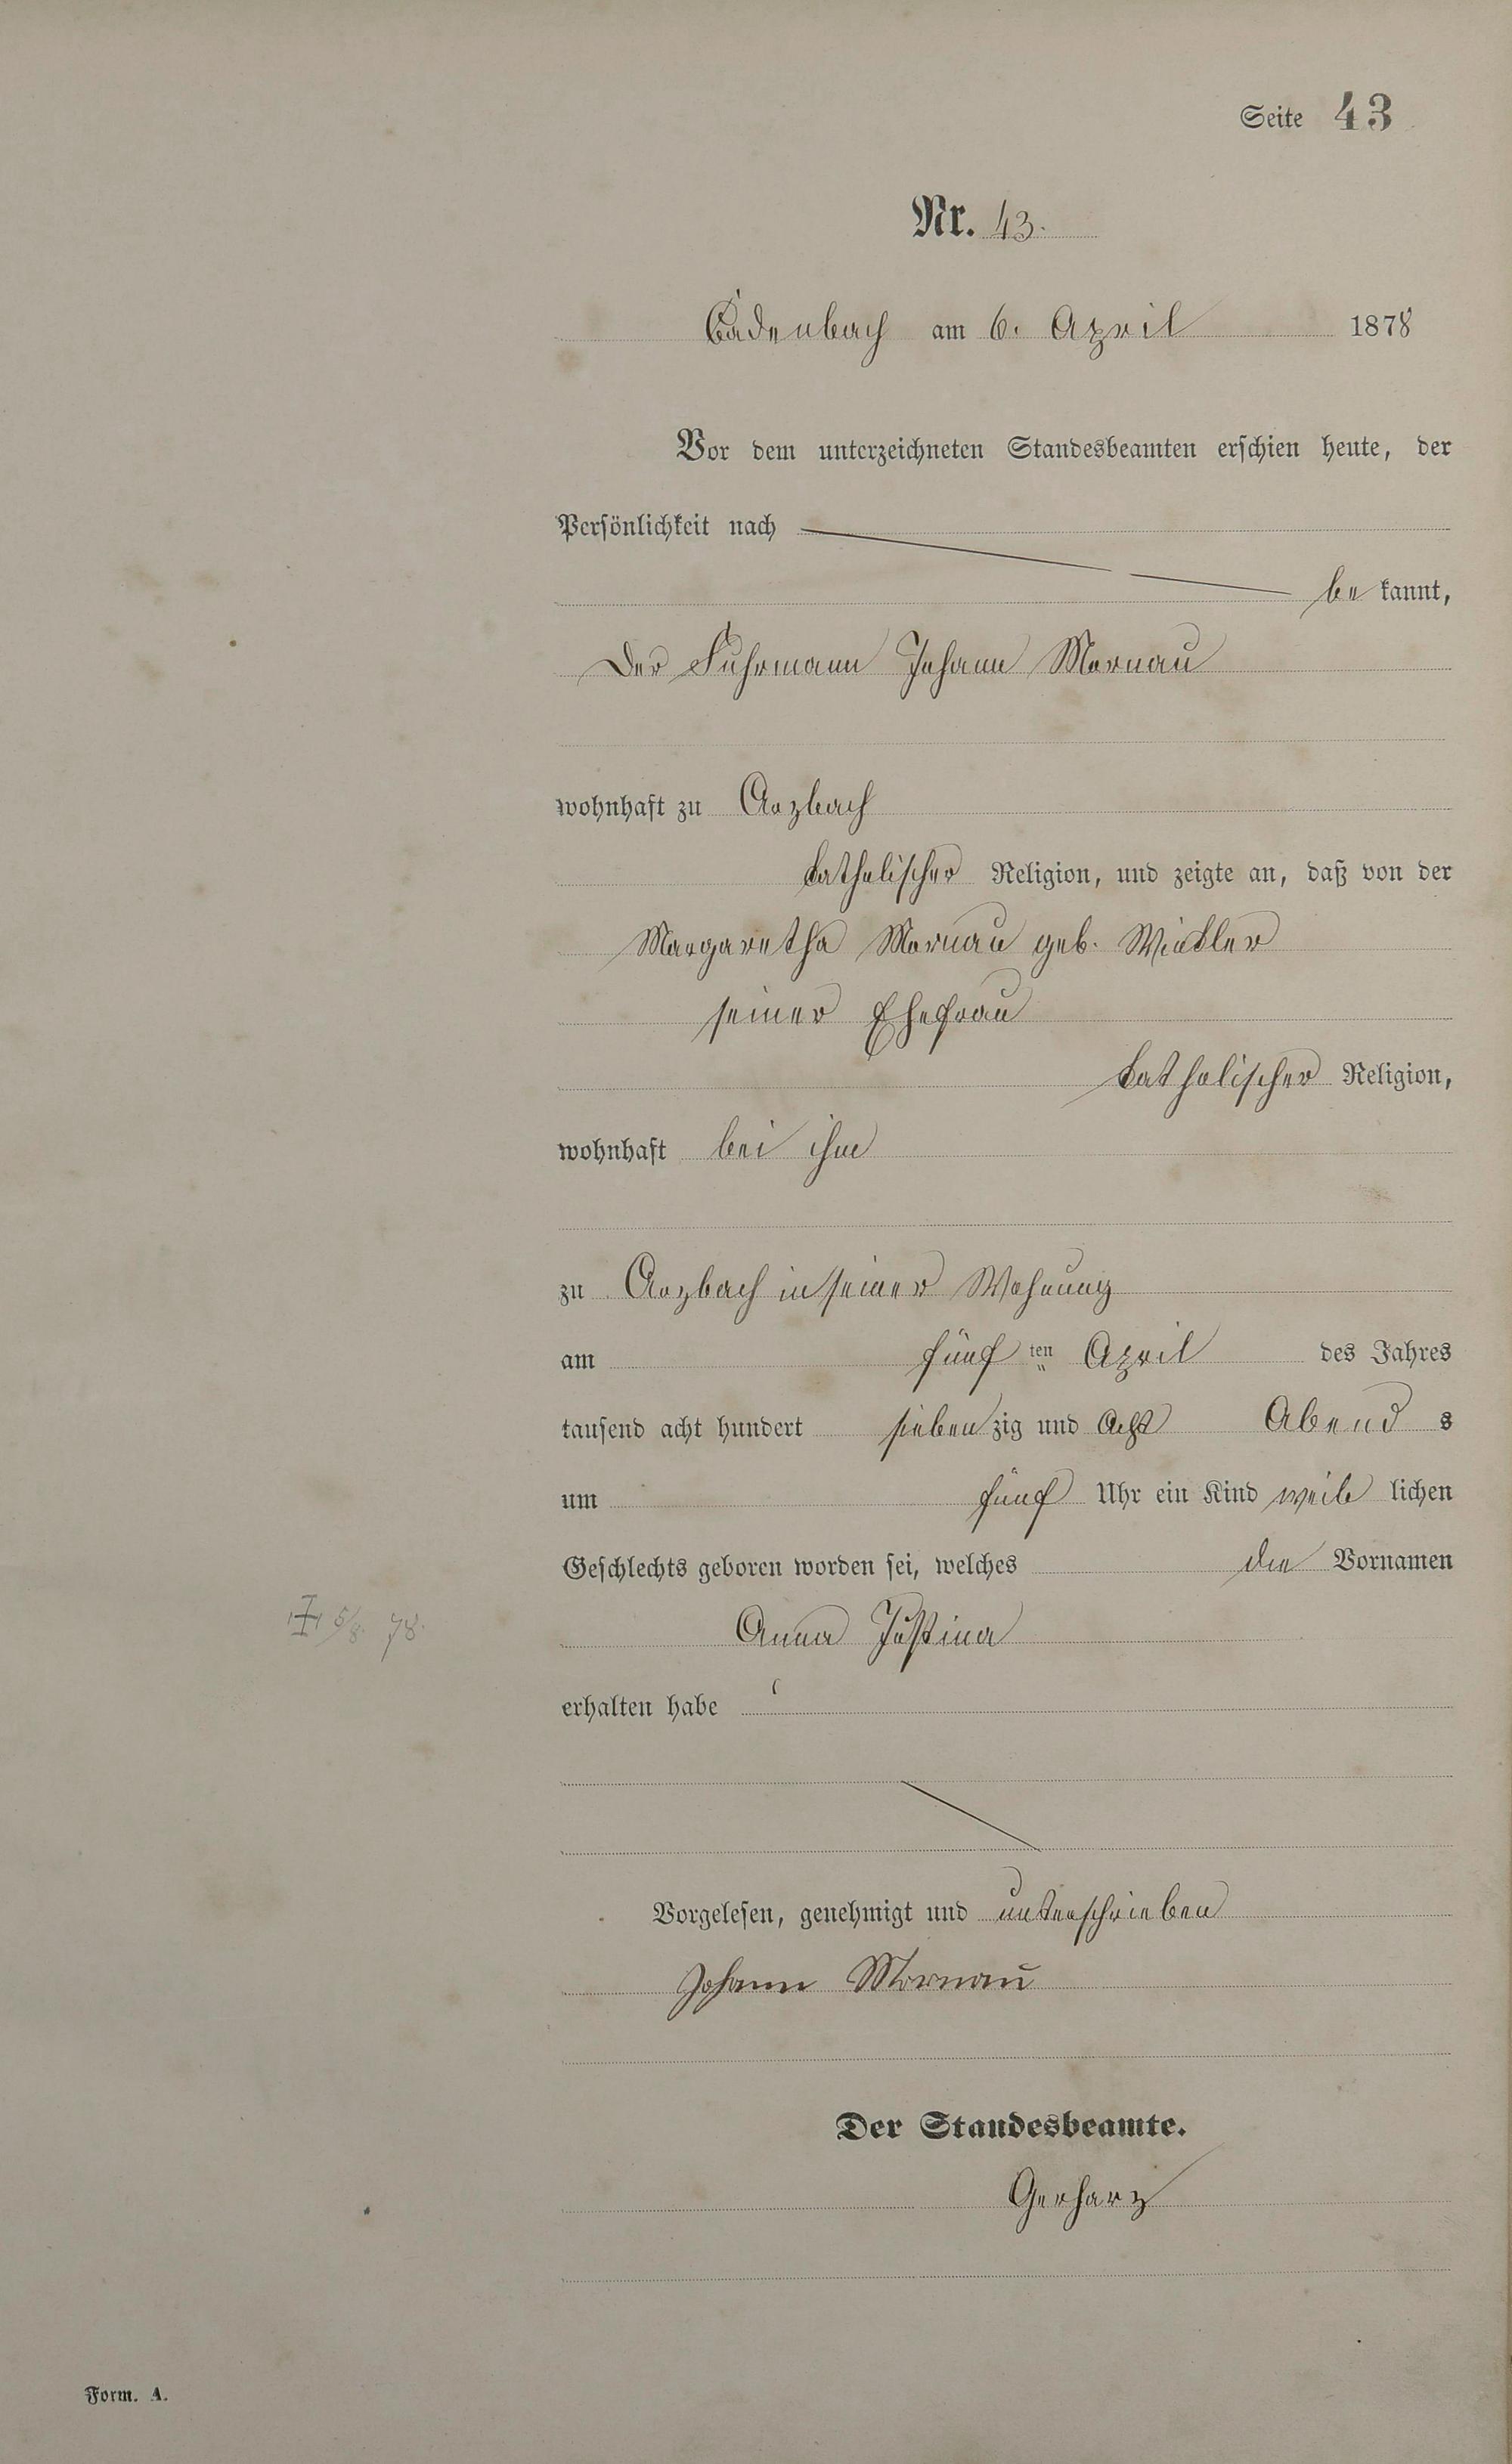 Seite 43
Nr. 43.
Cadenbach am 6. April 1878
Vor dem unterzeichneten Standesbeamten erschien heute, der
Persönlichkeit nach
be kannt,
Der Fuhrmann Johann Mornau
wohnhaft zu Arzbach
katholischer Religion, und zeigte an, daß von der
Margaretha Mornau geb. Winkler
seiner Ehefrau
katholischer Religion,
wohnhaft bei ihm
zu Arzbach in seiner Wohnung
am fünf ten April des Jahres
tausend acht hundert sieben zig und Acht Abend s
um fünf Uhr ein Kind weib lichen
Geschlechts geboren worden sei, welches die Vornamen
5/8. 78.
Anna Justina
erhalten habe
Vorgelesen, genehmigt und unterschrieben
Johann Mornau
Der Standesbeamte.
Gerharz
Form. A.